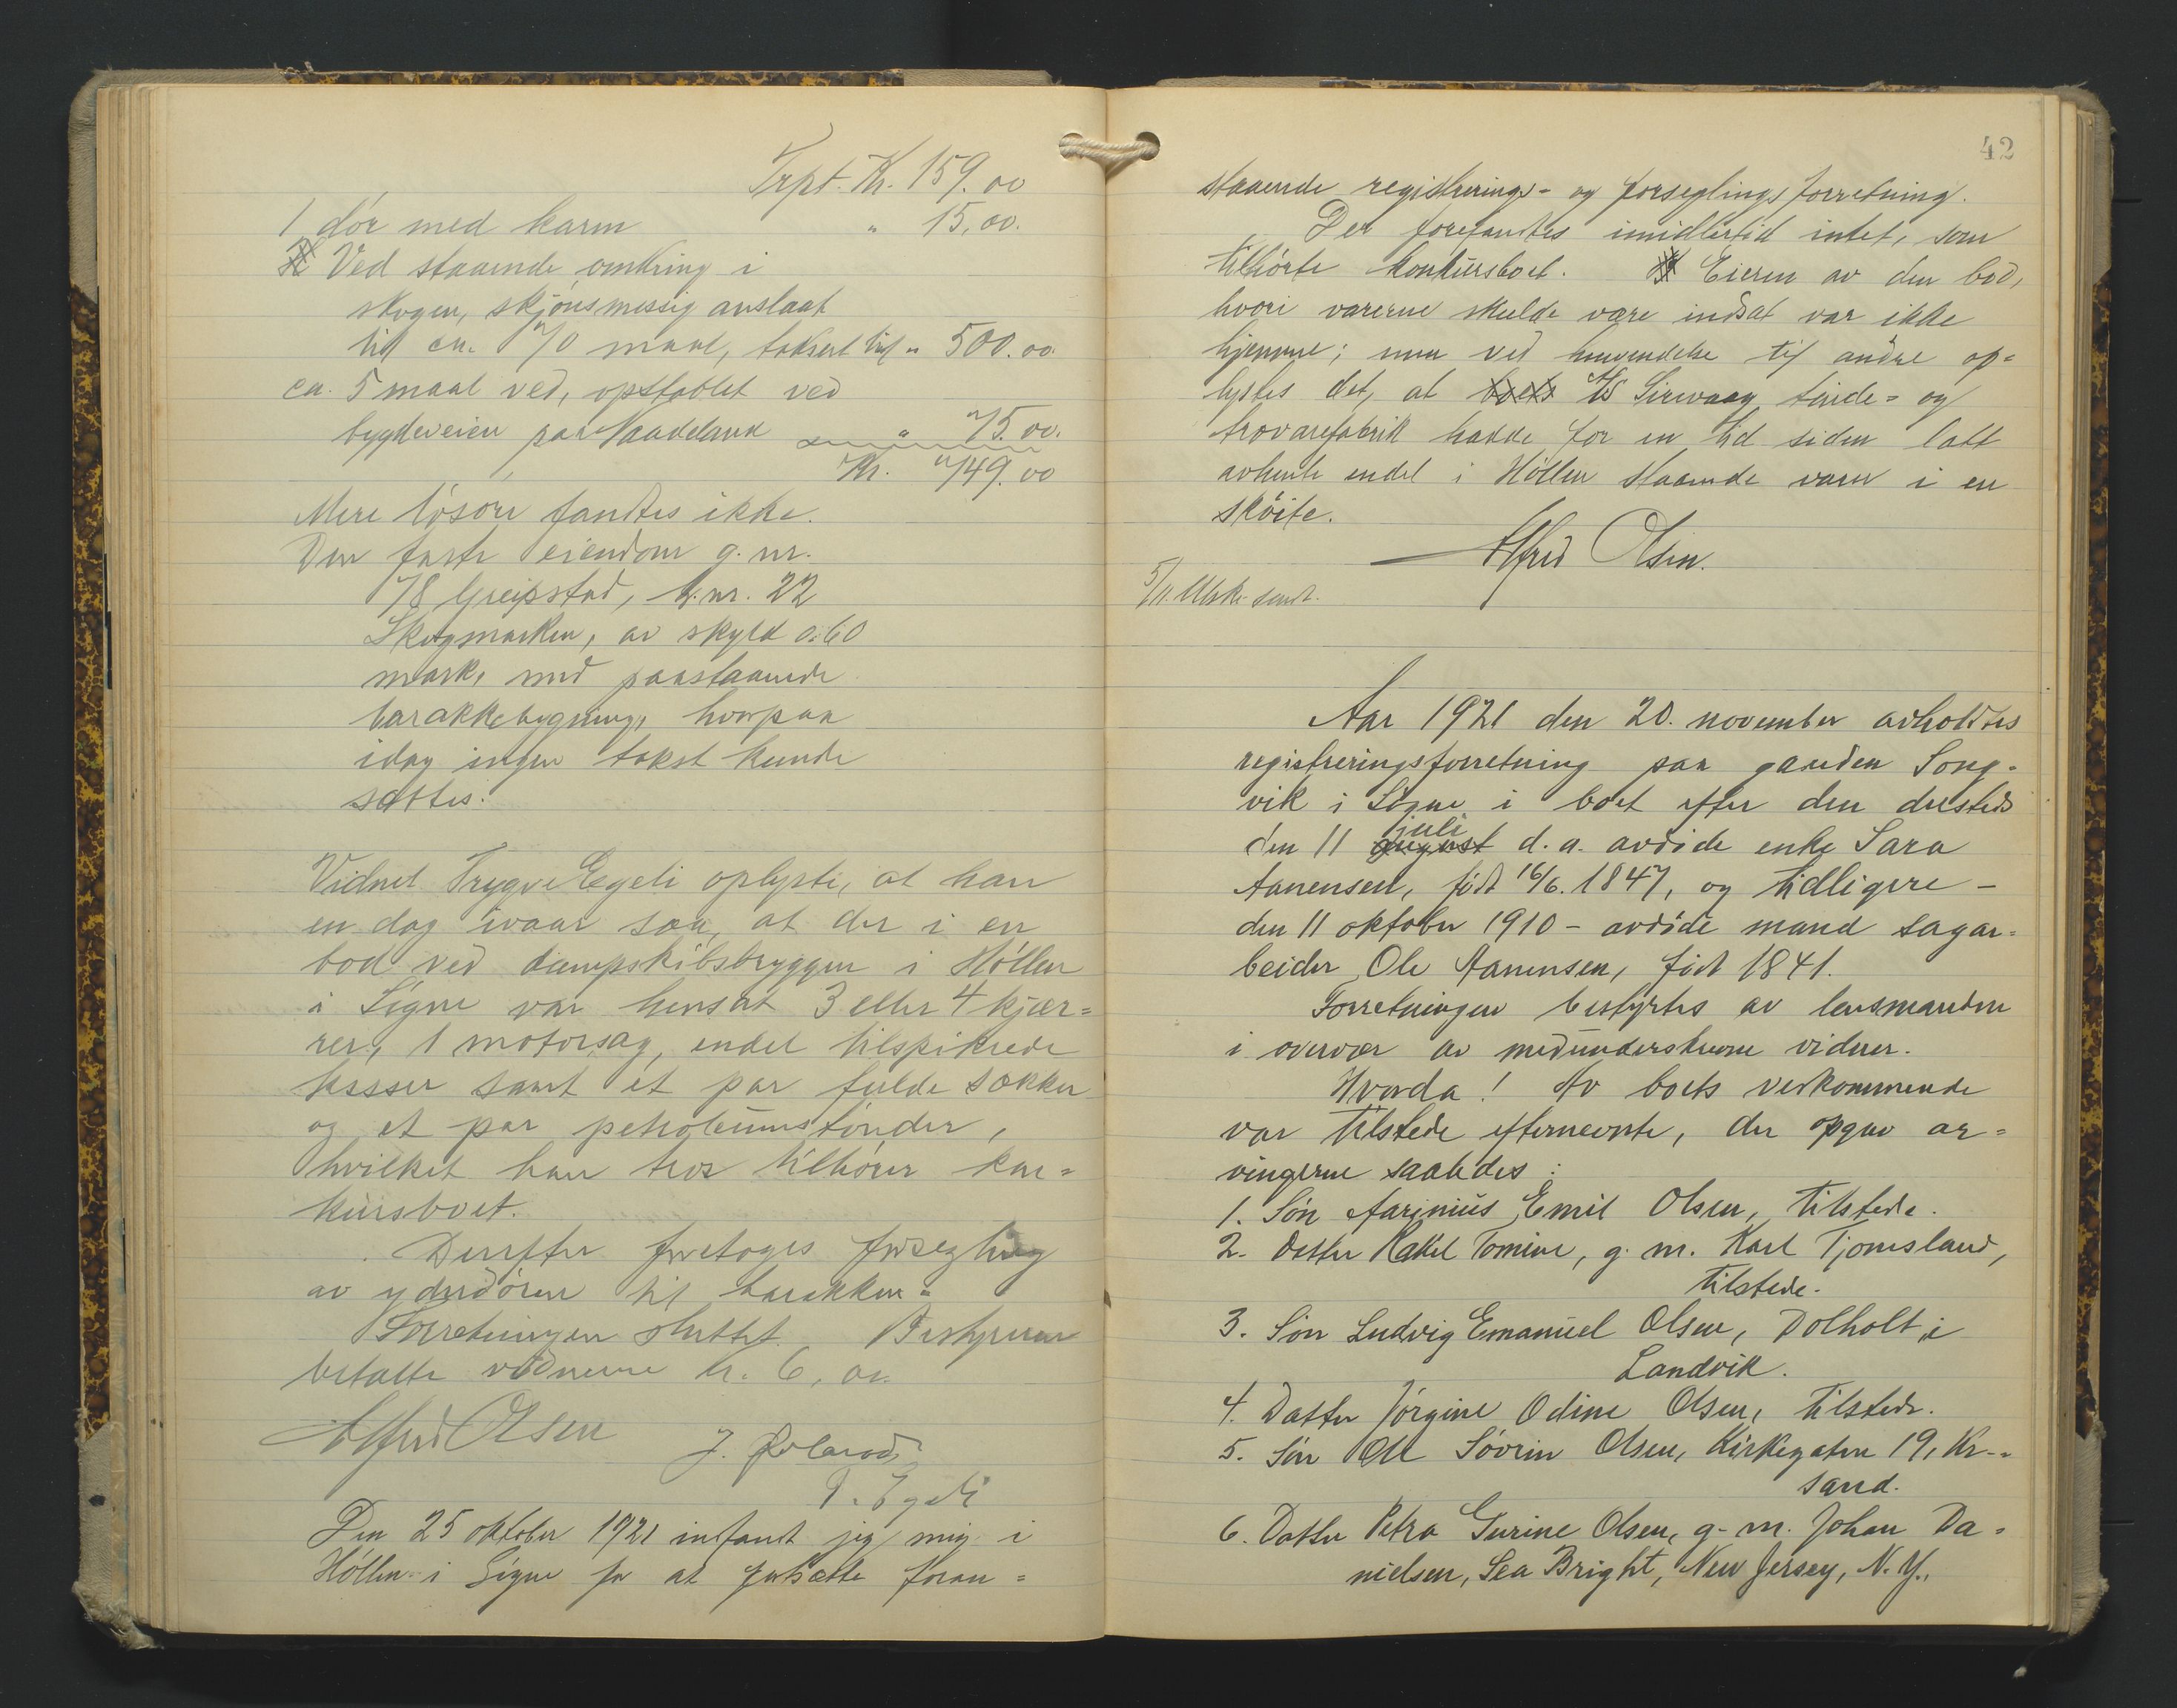 Trpt. Kr. 159.00
1 dör med karm " 15,00.
Ved staaende omkring i
skogen, skjönsmessig anslaat
til ca. 70 maal, taksert til " 500.00
ca. 5 maal ved, opstablet ved
bygdeveien paa Naadeland " 75.00.
Kr. 749.00
Mere lösöre fandtes ikke.
Den faste eiendom g.nr.
78 Greipstad, b.nr. 22
Skogmarken, av skyld 0.60
mark, med paastaaende
barakkebygning, hvorpaa
idag ingen takst kunde
sættes.
Vidnet Trygve Egeli oplyste, at han
en dag ivaar saa, at der i en
bod ved dampskibsbryggen i Höllen
i Sögne var hensat 3 eller 4 kjær=
rer, 1 motorsag, endel tilspikrede
kasser samt et par fulde sækker
og et par petroleumstönder,
hvilket han tror tilhörer kon=
kursboet.
Derefter foretoges forsegling
av yderdören til barakken.
Forretningen sluttet. Bestyreren
betalte vidnerne kr. 6,00.
Alfred Olsen J.
T. Egeli
Den 25 oktober 1921 indfandt jeg mig i
Höllen i Sögne for at fortsætte foran=
42
staaende registrerings- og forseglingsforretning.
Der forefandtes imidlertid intet, som
tilhörte konkursboet. Eieren av den bod,
hvori varerne skulde være indsat var ikke
hjemme; men ved henvendelse til andre op=
lystes det, at boets A/S Sirevaag tönde= og
trævarefabrik hadde for en tid siden latt
avhente endel i Höllen staaende varer i en
sköite.
Alfred Olsen.
5/11. Utskr. sendt.
Aar 1921 den 20. november avholdtes
registreringsforretning paa gaarden Song=
vik i Sögne i boet efter den dersteds
juli
den 11 august d.a. avdöde enke Sara
Aanensen, född 16/6. 1847, og tidligere –
den 11 oktober 1910 – avdöde mand sagar=
beider Ole Aanensen, född 1841.
Forretningen bestyrtes av lensmanden
i overvær av medunderskrevne vidner.
Hvorda! Av boets vedkommende
var tilstede efternevnte, der opgav ar=
vingerne saaledes:
1. Sön Aarinius Emil Olsen, tilstede.
2. Datter Rakel Tomine, g.m. Karl Tjomsland,
tilstede.
3. Sön Ludvig Emanuel Olsen, Dolholt i
Landvik.
4. Datter Jörgine Odine Olsen, tilstede.
5. Sön Ole Sövrin Olsen, Kirkegaten 19, Kr.-
sand.
6. Datter Petra Gurine Olsen, g.m. Johan Da=
nielsen, Sea Bright, New Jersey, N.Y.,